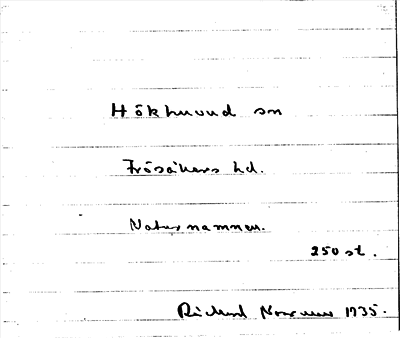 Hökhuvud sn
Frösåkers hd.
Naturnamnen.
250 st.
Richard 1935.